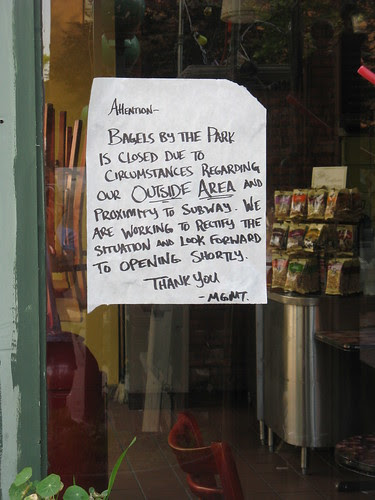 Attention-
BAGELS BY THE PARK
IS CLOSED DUE TO
CIRCUMSTANCES REGARDING
OUR OUTSIDE AREA AND
PROXIMITY TO SUBWAY. WE
ARE WORKING TO RECTIFY THE
SITUATION AND LOOK FORWARD
TO OPENING SHORTLY.
THANK YOU
- MGMT.